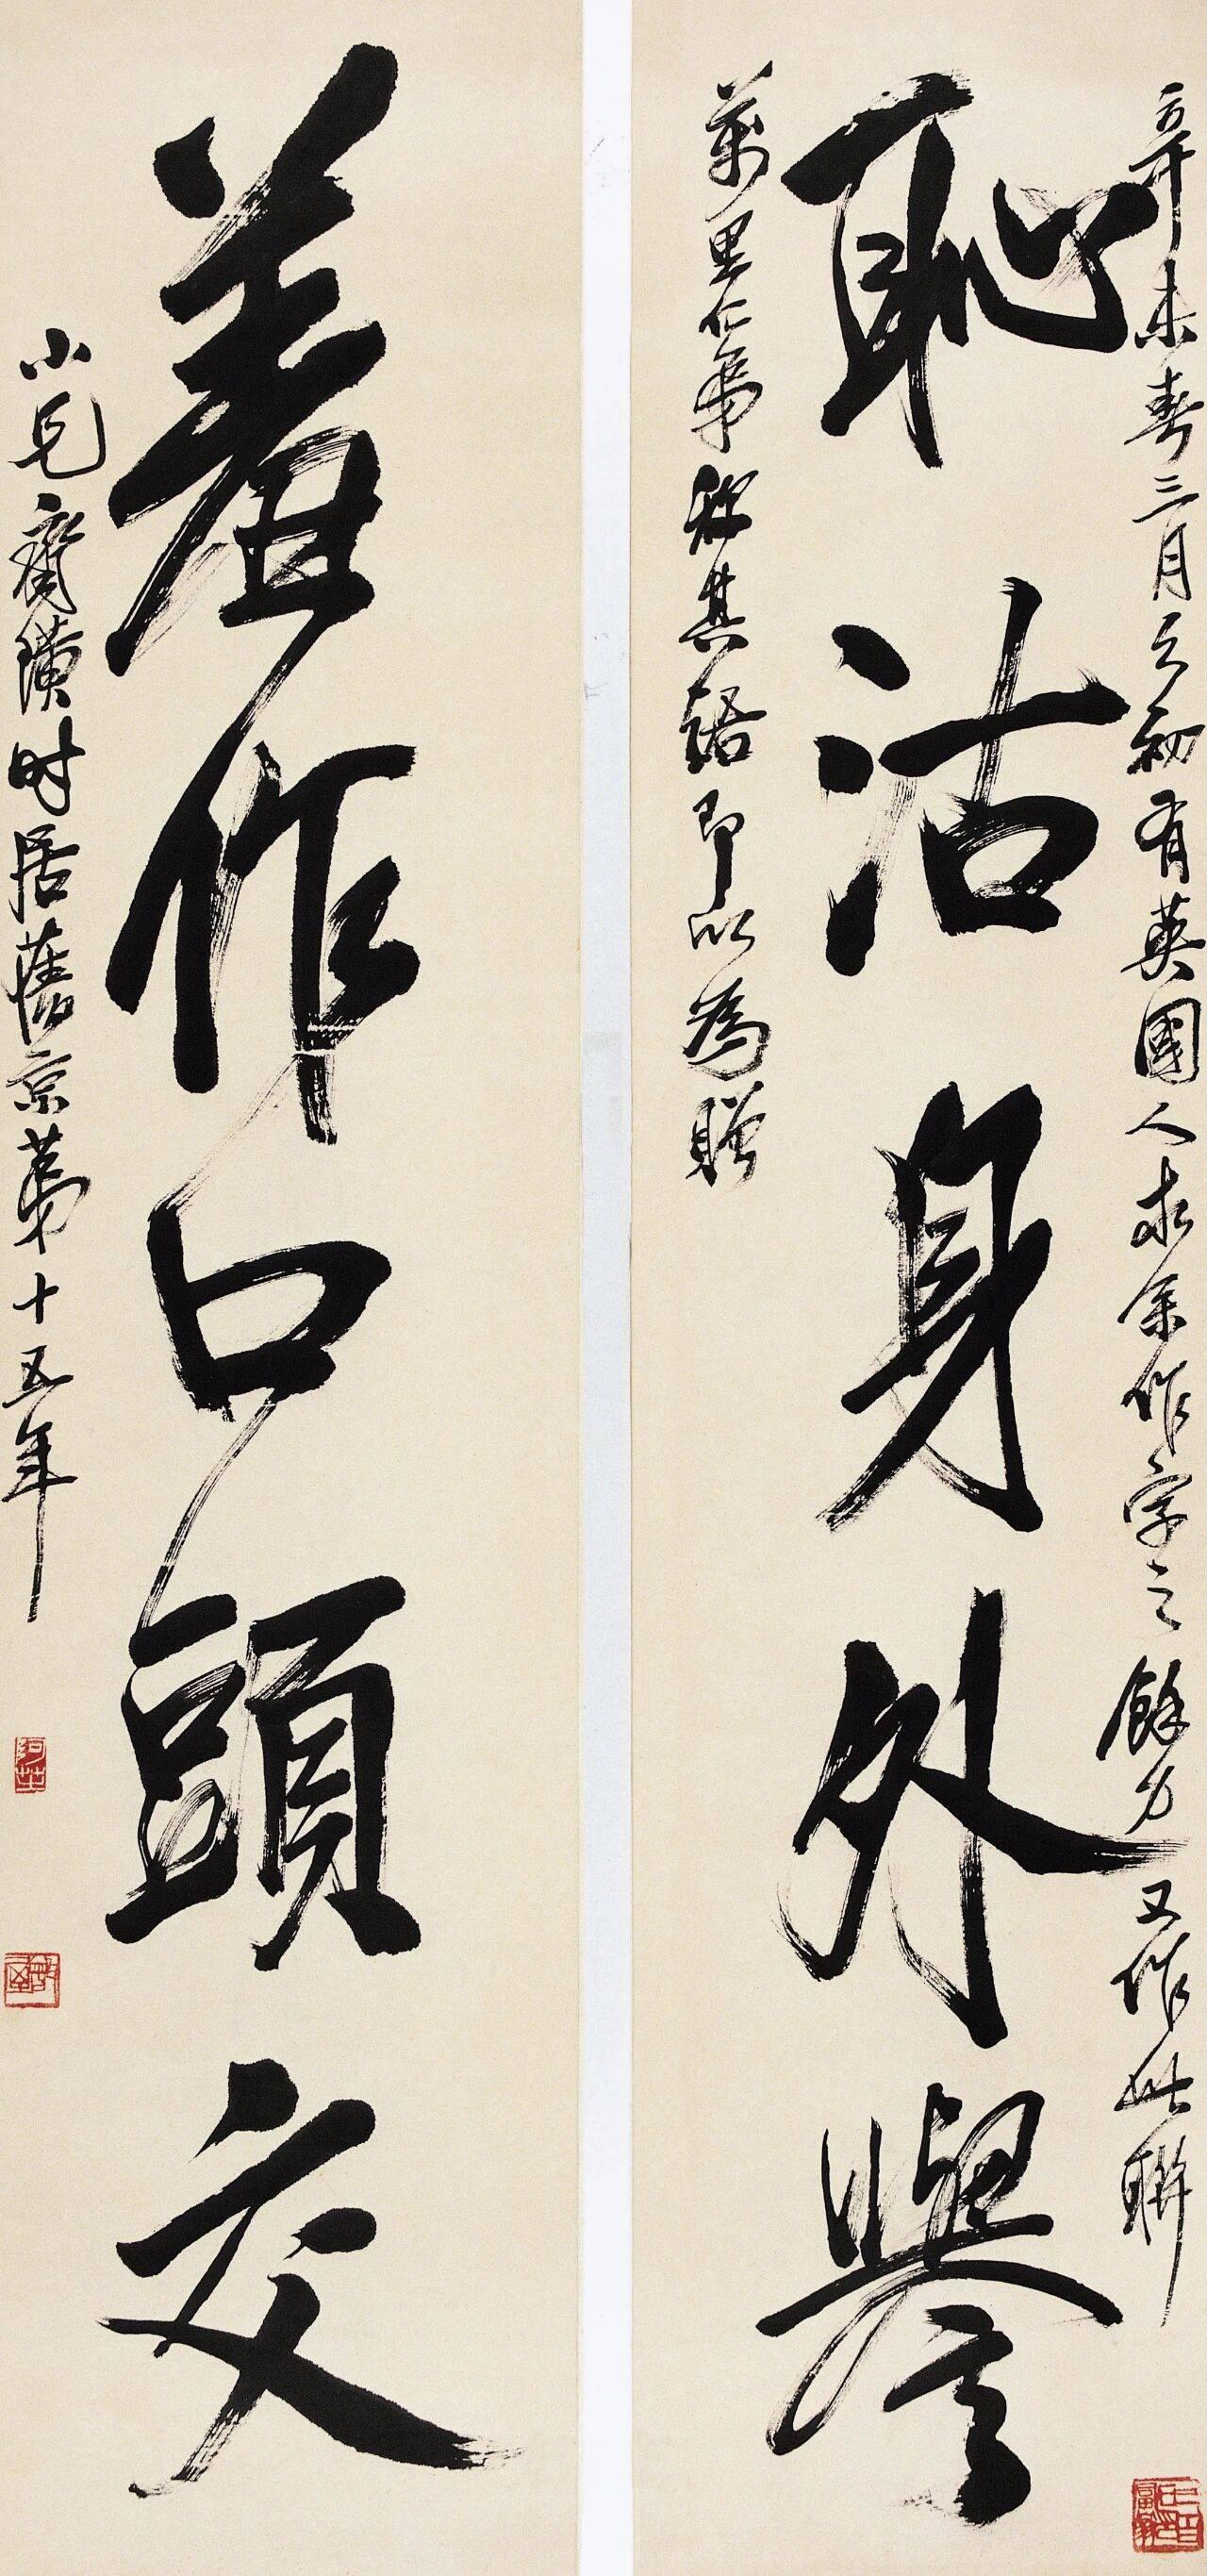 辛未春二月之初有英國人求余作字之餘力又作此聯
恥沽身外譽
萬里仁弟稱其語即以為贈
羞作口頭交
小兄齊璜時居舊京第十五年
阿芝